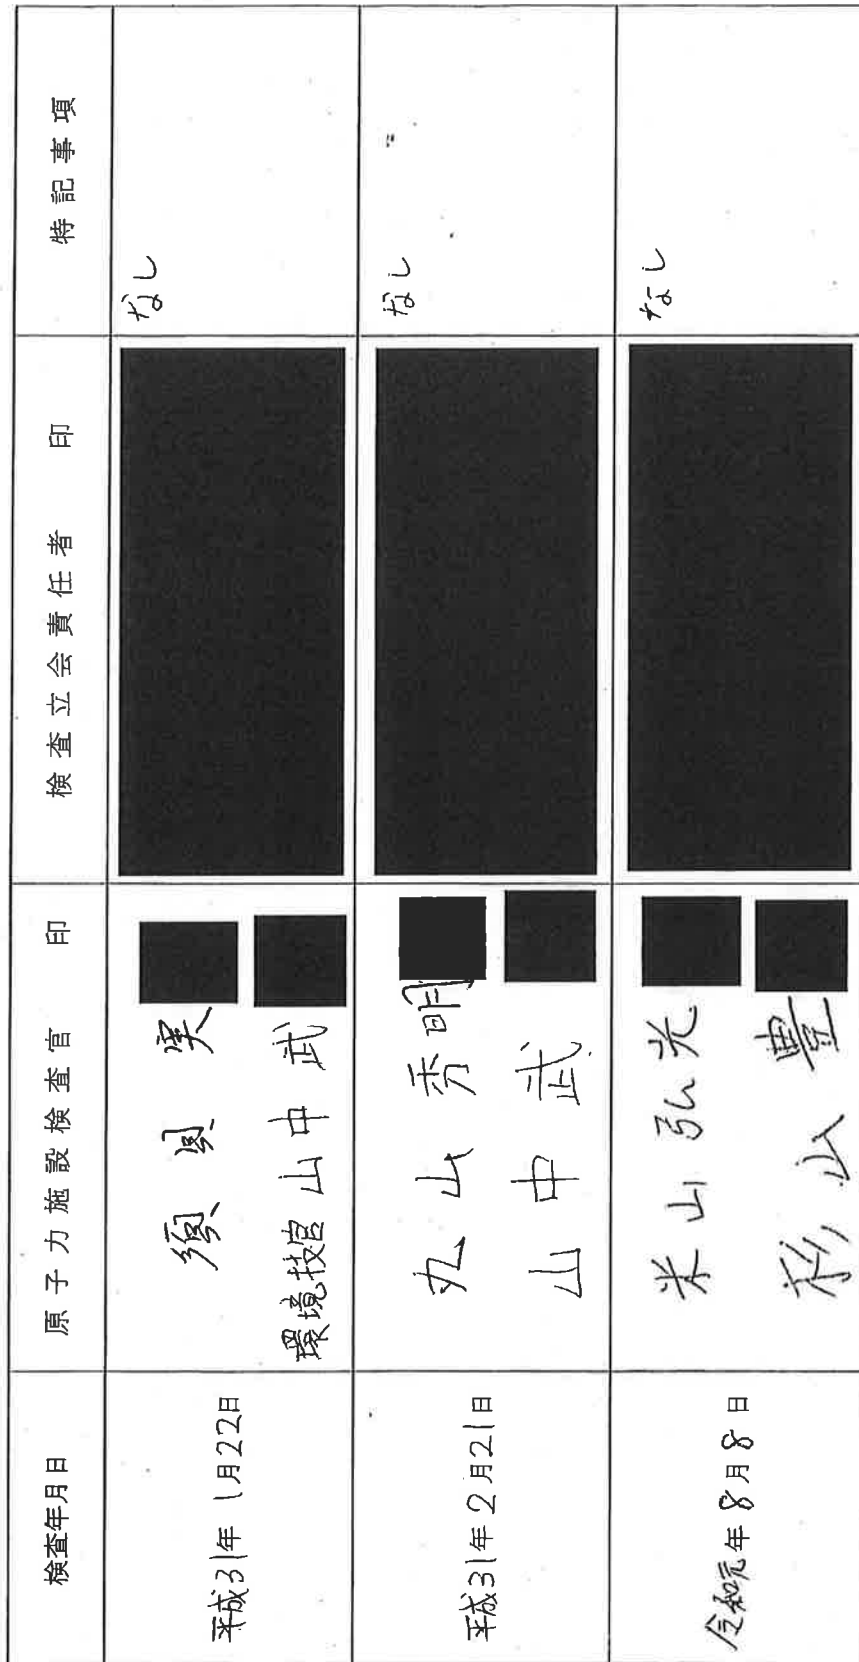 検査年月日 原子力施設検査官 印 検査立会責任者 印 特記事項
平成31年1月22日 須貝 実 なし
環境技官 山中 武
平成31年2月21日 丸山秀明 なし
山中 武
令和元年8月8日 米山弘光 なし
杉山 豊